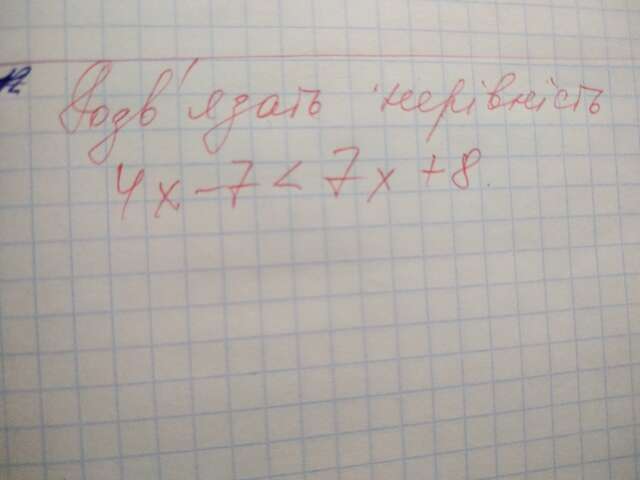 Розв'язать нерівність
4x - 7 < 7x + 8.